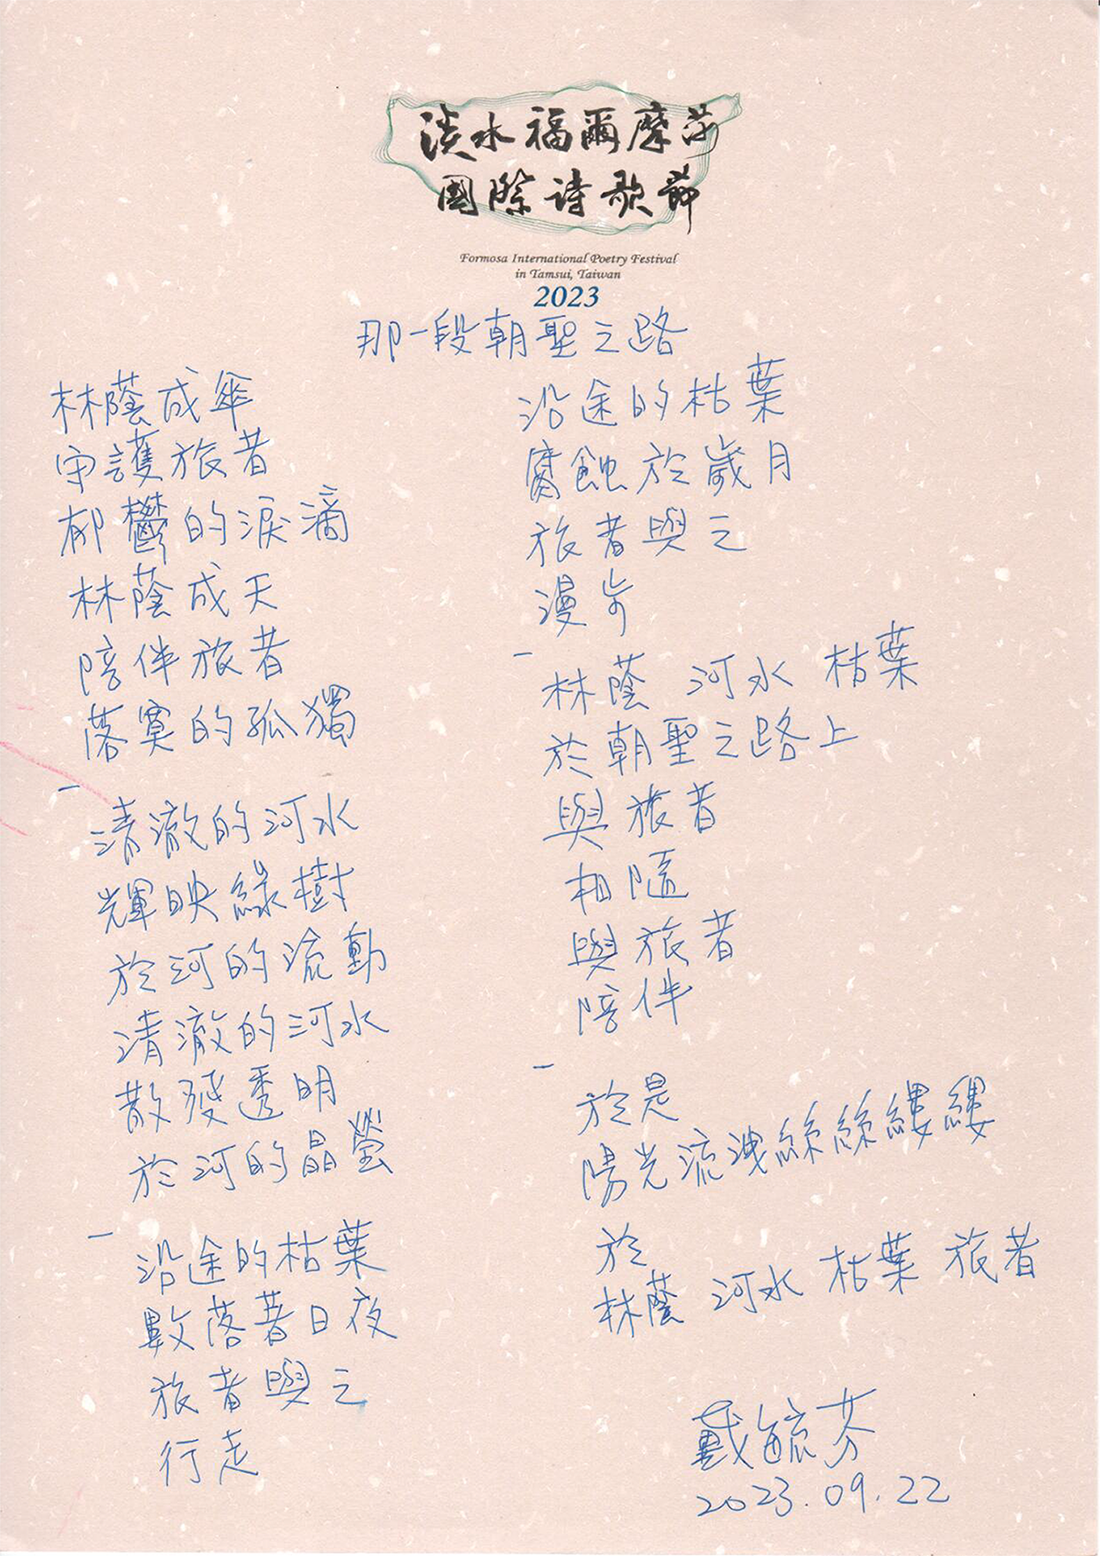 淡水福爾摩莎
國際詩歌節
Formosa International Poetry Festival
in Tamsui, Taiwan
2023
那一段朝聖之路
林蔭成傘
守護旅者
郁鬱的淚滴
林蔭成天
陪伴旅者
落寞的孤獨
–
清澈的河水
輝映綠樹
於河的流動
清澈的河水
散發透明
於河的晶瑩
–
沿途的枯葉
數落著日夜
旅者與之
行走
沿途的枯葉
腐蝕於歲月
旅者與之
漫步
–
林蔭 河水 枯葉
於朝聖之路上
與旅者
相隨
與旅者
陪伴
–
於是
陽光流洩絲絲縷縷
於
林蔭 河水 枯葉 旅者
戴毓芬
2023.09.22